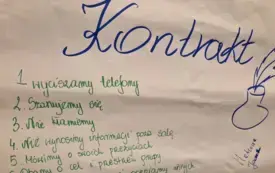 Kontrakt
1 wyciszamy telefony
2. Szanujemy się
3. Nie kłamiemy
4. Nie wynosimy informacji poza salę
5 Mówimy o swoich przeżyciach
6 Dbamy o cel i przestrzeń grupy